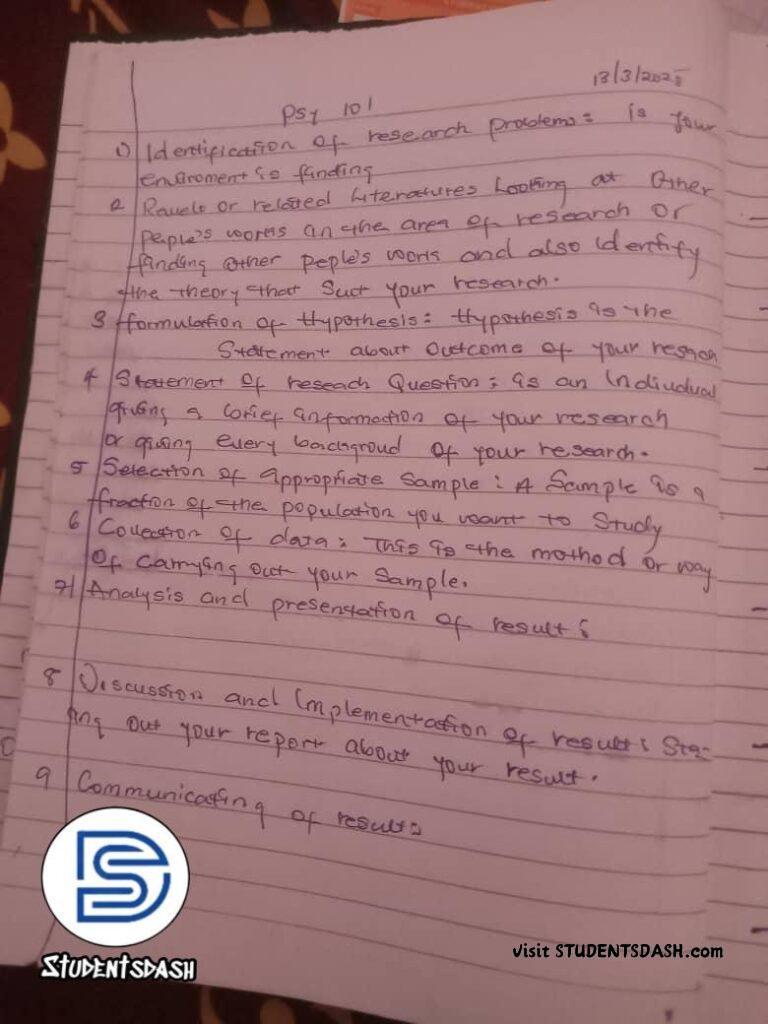 13/3/2025
PSY 101
1) Identification of research problems: is your
enviroment is finding
2 Ravele or related literatures Looking at Other
people's works in the area of research or
finding other peple's work and also identify
the theory that Suit your research.
3 formulation of Hypothesis: Hypothesis is the
Statement about Outcome of your
4 Statement of reseach Question: is an individual
giving a brief information of your research
or giving every backgroud of your research.
5 Selection of appropriate Sample: A Sample is a
fraction of the population you want to Study
6 Collection of data: This is the mothod or way
Of Carrying out your Sample.
7) Analysis and presentation of result:
8 Discussion and Implementation of result: Sta-
ting out your report about your result.
9 Communicating of result:
DS
STUDENTSDASH
Visit STUDENTSDASH.com